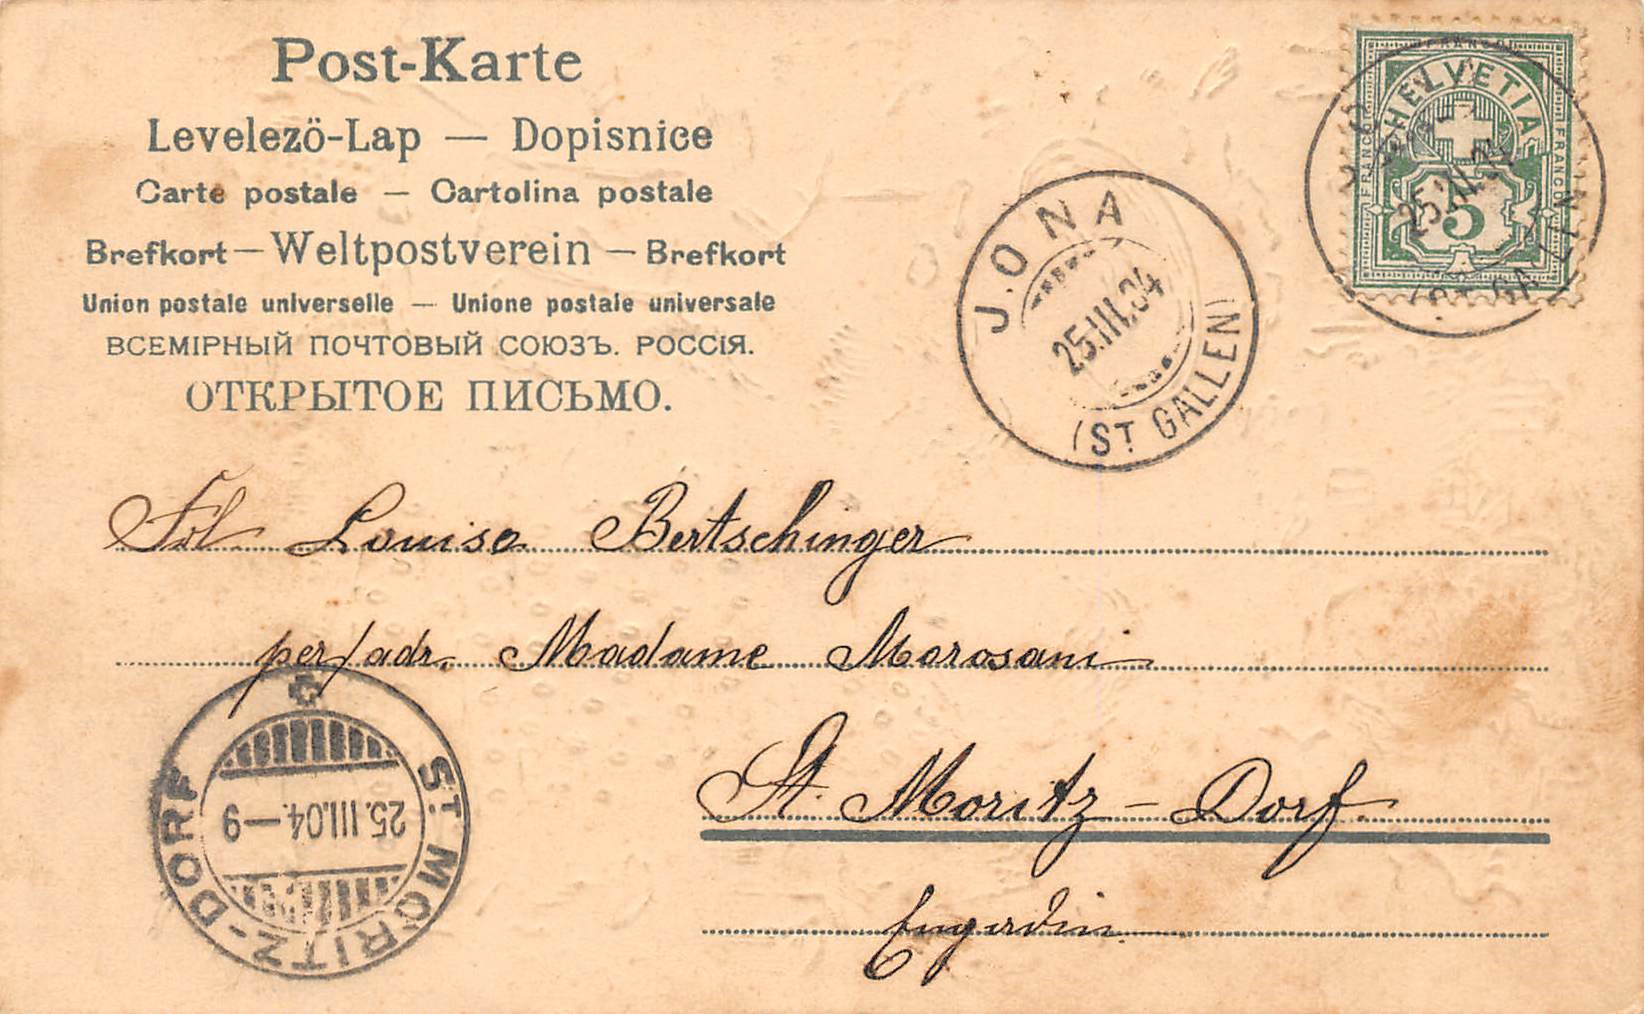 Post-Karte
Levelezö-Lap — Dopisnice
Carte postale — Cartolina postale
Brefkort — Weltpostverein — Brefkort
Union postale universelle — Unione postale universale
ВСЕМІРНЫЙ ПОЧТОВЫЙ СОЮЗЪ. РОССІЯ.
ОТКРЫТОЕ ПИСЬМО.
FRANCO
HELVETIA
FRANCO
FRANCO
5
25.III.04
(ST. GALLEN)
JONA
25.III.04
(ST. GALLEN)
Frl. Louise Bertschinger
per/adr. Madame Morosani
St. Moritz-Dorf.
Engadin
ST. MORITZ-DORF
25.III.04.-9